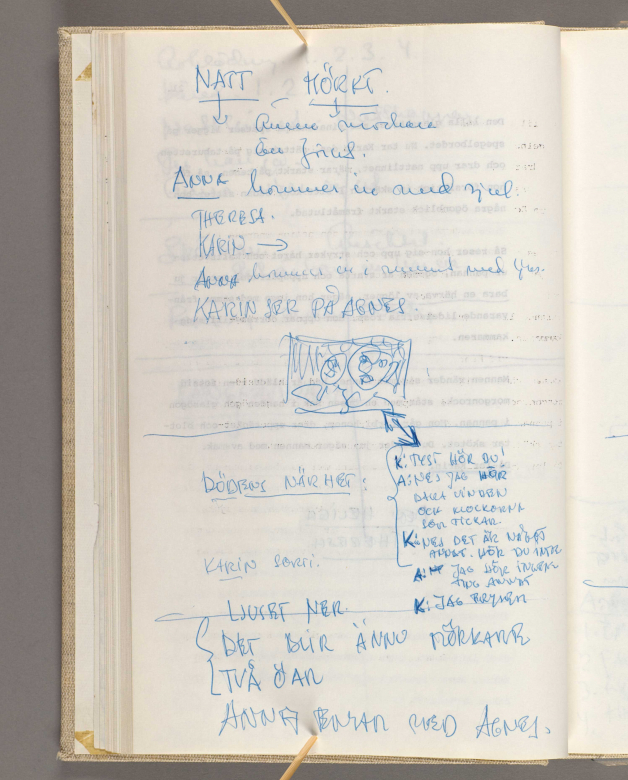 NATT MÖRKT.
ANNA kommer in med ljus.
THERESA.
KARIN →
ANNA kommer in i rummet med ljus.
KARIN SER PÅ AGNES.
K: TYST HÖR DU!
A: NEJ JAG HÖR
BARA VINDEN
OCH KLOCKORNA
SOM TICKAR.
DÖDENS NÄRHET:
K: NEJ DET ÄR NÅGOT
ANNAT. HÖR DU INTE
A: JAG HÖR INGEN-
TING ANNAT
KARIN SORTI.
K: JAG FRYSER
LJUSET NER.
DET BLIR ÄNNU MÖRKARE
TVÅ ÖAR
ANNA ENSAM MED AGNES.